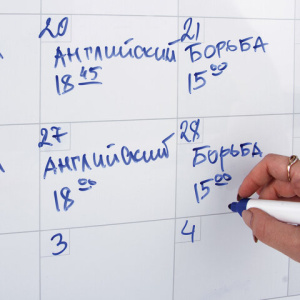 20 21
АНГЛИЙСКИЙ БОРЬБА
18 45 15 00
27 28
АНГЛИЙСКИЙ БОРЬБА
18 00 15 00
3 4